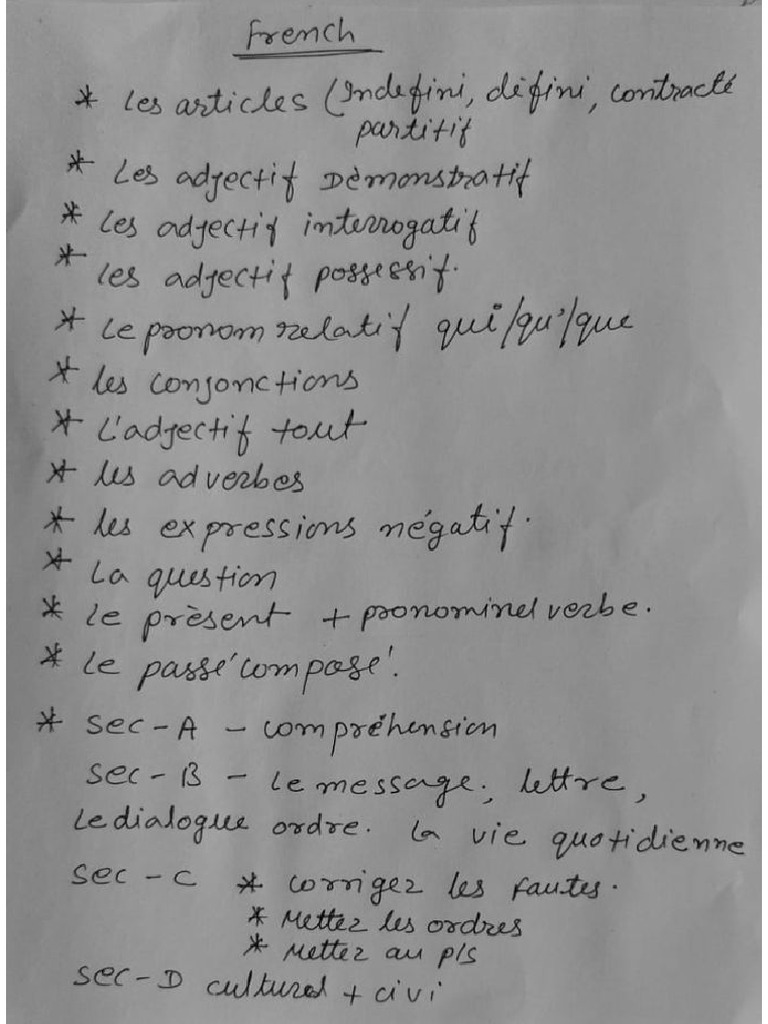 French
* Les articles (Indefini, défini, contracté
partitif
* Les adjectif Dèmonstratif
* les adjectif interrogatif
* les adjectif possessif.
* Le pronom relatif qui/qu'/que
* les conjonctions
* L'adjectif tout
* les adverbes
* les expressions négatif.
* La question
* Le prèsent + pronominel verbe.
* Le passé composé.
* Sec-A - compréhension
Sec-B - Le message, lettre,
Le dialogue ordre. La vie quotidienne
Sec-C * Corrigez les fautes.
* Mettez les ordres
* Mettez au p/s
Sec-D cultural + civi